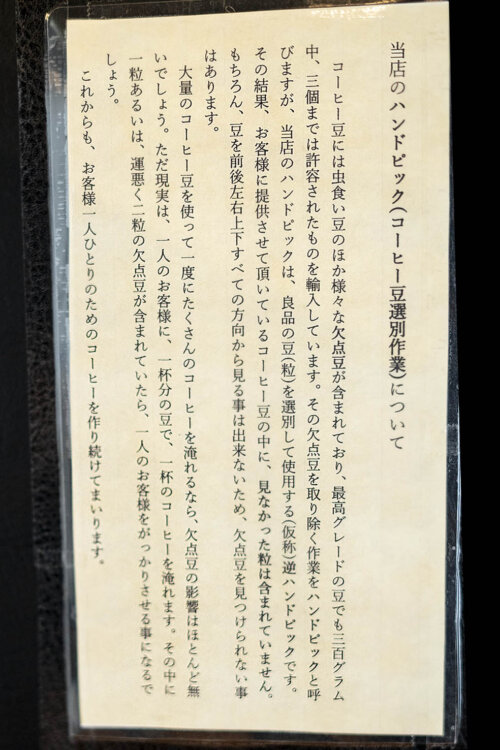 当店のハンドピック(コーヒー豆選別作業)について
コーヒー豆には虫食い豆のほか様々な欠点豆が含まれており、最高グレードの豆でも三百グラム
中、三個までは許容されたものを輸入しています。その欠点豆を取り除く作業をハンドピックと呼
びますが、当店のハンドピックは、良品の豆(粒)を選別して使用する(仮称)逆ハンドピックです。
その結果、お客様に提供させて頂いているコーヒー豆の中に、見なかった粒は含まれていません。
もちろん、豆を前後左右上下すべての方向から見る事は出来ないため、欠点豆を見つけられない事
はあります。
大量のコーヒー豆を使って一度にたくさんのコーヒーを淹れるなら、欠点豆の影響はほとんど無
いでしょう。ただ現実は、一人のお客様に、一杯分の豆で、一杯のコーヒーを淹れます。その中に
一粒あるいは、運悪く二粒の欠点豆が含まれていたら、一人のお客様をがっかりさせる事になるで
しょう。
これからも、お客様一人ひとりのためのコーヒーを作り続けてまいります。